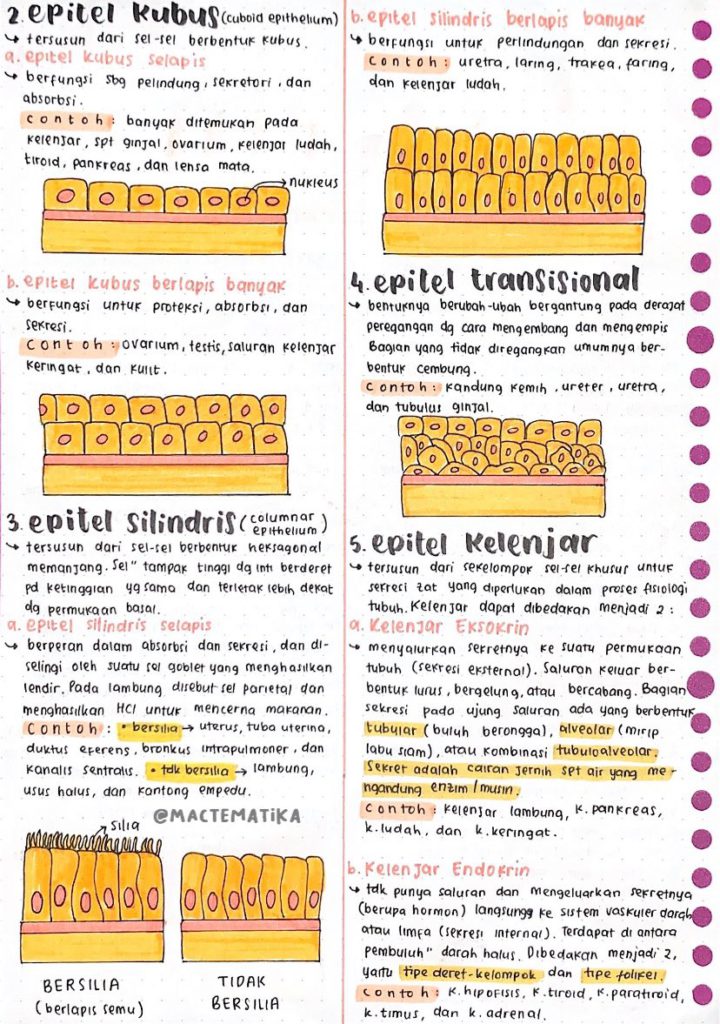 2. epitel kubus (cuboid epithelium)
↳ tersusun dari sel-sel berbentuk kubus.
a. epitel kubus selapis
↳ berfungsi sbg pelindung, sekretori, dan
absorbsi.
contoh: banyak ditemukan pada
kelenjar, spt ginjal, ovarium, kelenjar ludah,
tiroid, pankreas, dan lensa mata.
nukleus
b. epitel kubus berlapis banyak
↳ berfungsi untuk proteksi, absorbsi, dan
sekresi.
contoh: ovarium, testis, saluran kelenjar
keringat, dan kulit.
3. epitel silindris (columnar epithelium)
↳ tersusun dari sel-sel berbentuk heksagonal
memanjang. Sel" tampak tinggi dg inti berderet
pd ketinggian yg sama dan terletak lebih dekat
dg permukaan basal.
a. epitel silindris selapis
↳ berperan dalam absorbsi dan sekresi, dan di-
selingi oleh suatu sel goblet yang menghasilkan
lendir. Pada lambung disebut sel parietal dan
menghasilkan HCl untuk mencerna makanan.
Contoh: • bersilia → uterus, tuba uterina,
duktus eferens, bronkus intrapulmoner, dan
kanalis sentralis. • tdk bersilia → lambung,
usus halus, dan kantong empedu.
@MACTEMATIKA
silia
BERSILIA
(berlapis semu)
TIDAK
BERSILIA
b. epitel silindris berlapis banyak
↳ berfungsi untuk perlindungan dan sekresi.
Contoh: uretra, laring, trakea, faring,
dan kelenjar ludah.
4. epitel transisional
↳ bentuknya berubah-ubah bergantung pada derajat
peregangan dg cara mengembang dan mengempis
Bagian yang tidak diregangkan umumnya ber-
bentuk cembung.
Contoh: kandung kemih, ureter, uretra,
dan tubulus ginjal.
5. epitel kelenjar
↳ tersusun dari sekelompok sel-sel khusus untuk
sekresi zat yang diperlukan dalam proses fisiologi
tubuh. Kelenjar dapat dibedakan menjadi 2:
a. Kelenjar Eksokrin
↳ menyalurkan sekretnya ke suatu permukaan
tubuh (sekresi eksternal). Saluran keluar ber-
bentuk lurus, bergelung, atau bercabang. Bagian
sekresi pada ujung saluran ada yang berbentuk
tubular (buluh berongga), alveolar (mirip
labu siam), atau kombinasi tubuloalveolar.
Sekret adalah cairan jernih spt air yang me-
ngandung enzim/musin.
Contoh: kelenjar lambung, k. pankreas,
k. ludah, dan k. keringat.
b. Kelenjar Endokrin
↳ tdk punya saluran dan mengeluarkan sekretnya
(berupa hormon) langsung ke sistem vaskuler darah
atau limfa (sekresi internal). Terdapat di antara
pembuluh" darah halus. Dibedakan menjadi 2,
yaitu tipe deret-kelompok dan tipe folikel.
Contoh: k. hipofisis, k. tiroid, k. paratiroid,
k. timus, dan k. adrenal.